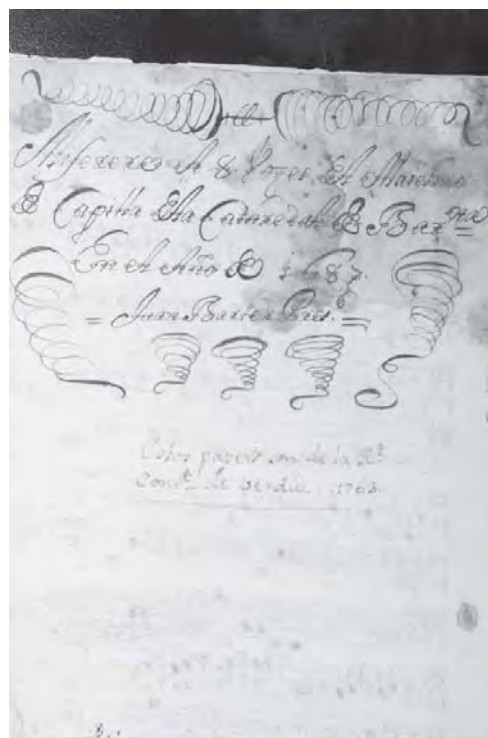 Miserere A 8 Vozes. del Maestro
de Capilla de la Catredal de Barna =
En el Año de 1687.
= Juan Barter Pres.º =
Estos papeles son de la Rl.
Comd. de Verdu. 1763.